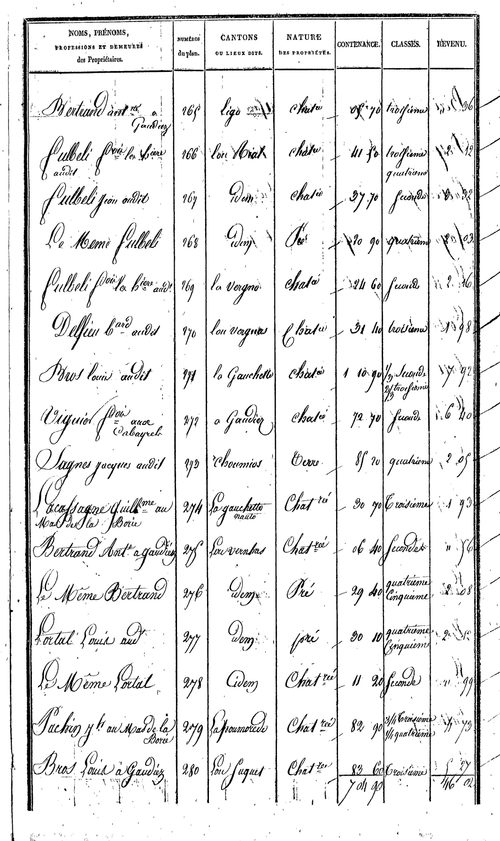 NOMS, PRÉNOMS, PROFESSIONS ET DEMEURES des Propriétaires. NUMÉROS du plan. CANTONS OU LIEUX DITS. NATURE DES PROPRIÉTÉS. CONTENANCE. CLASSES. REVENU.
Bertrand ant.ne a Gaudiez 265 chat.e 70 troisieme 36
Fulbeli audit 266 Lou chat.e 41 50 troisieme quatrieme
Fulbeli jean audit 267 idem chat.e 37 70 seconde
Le Meme Fulbeli 268 idem Pré 20 90 quatrieme
Fulbeli audit 269 la vergno chat.e 24 60 seconde 2
Delfieu audit 270 lou vergnas Chat.e 31 40 troisieme 1 98
Bros louis audit 271 la Gauchette chat.e 1 10 90 1/3 seconde 2/3 troisieme 7 92
Viguier aux Cabayrels 272 a Gaudiez chat.e 72 70 seconde 6 40
Sagnes jacques audit 273 Choumios Terre 85 20 quatrieme 2 05
Lacassagne Guill.me au Mas de la Borie 274 La gauchette haute Chat.rée 30 70 Troisieme 1 93
Bertrand Ant.e a gaudiez 275 Lou vernhas Chat.rée 06 40 Seconde " 56
Le Même Bertrand 276 idem Pré 29 40 quatrieme Cinquieme 2 08
Portal Louis aud.t 277 idem pré 30 10 quatrieme Cinquieme 2
Le Même Portal 278 idem Chat.rée 11 20 Seconde " 99
Pachin au Mas de la Borie 279 Chat.rée 82 90 3/4 Troisieme 1/4 quatrieme 4 73
Bros Louis a Gaudiez 280 Lou Suquet Chat.rée 83 60 Troisieme 5 27
7 04 90 46 02